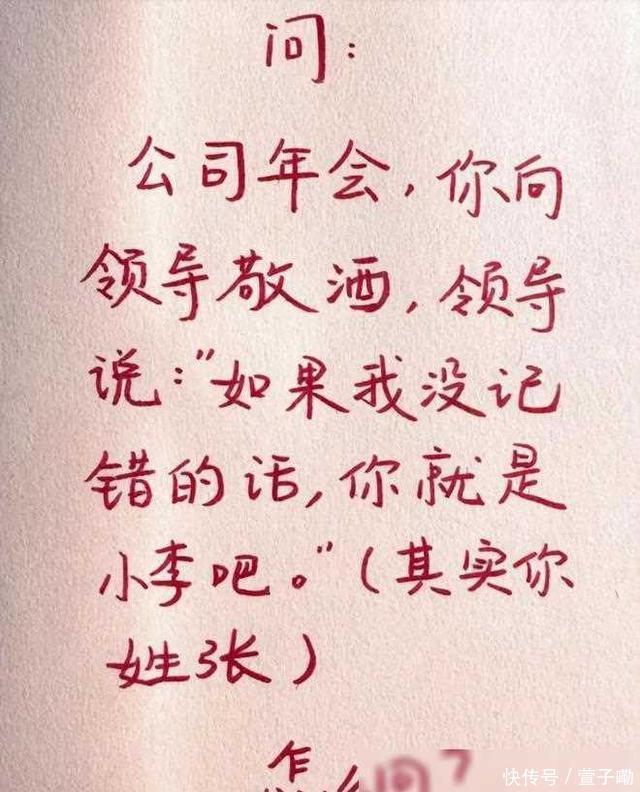 问：
公司年会，你向
领导敬酒，领导
说："如果我没记
错的话，你就是
小李吧。"（其实你
姓张）
怎么回？
快传号／萱子嘞